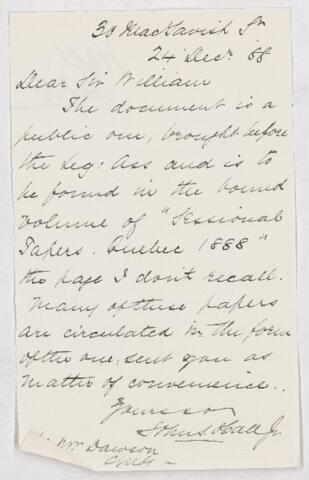 30 MacTavish St
24 Decr 88
Dear Sir William
The document is a
public one, brought before
the Leg: Ass and is to
be found in the bound
volume of "Sessional
Papers. Quebec 1888"
the page I don't recall.
Many of these papers
are circulated in the form
of the one, sent you as
matter of convenience..
Yours so
John S. Hall Jr
Wm Dawson
CMG